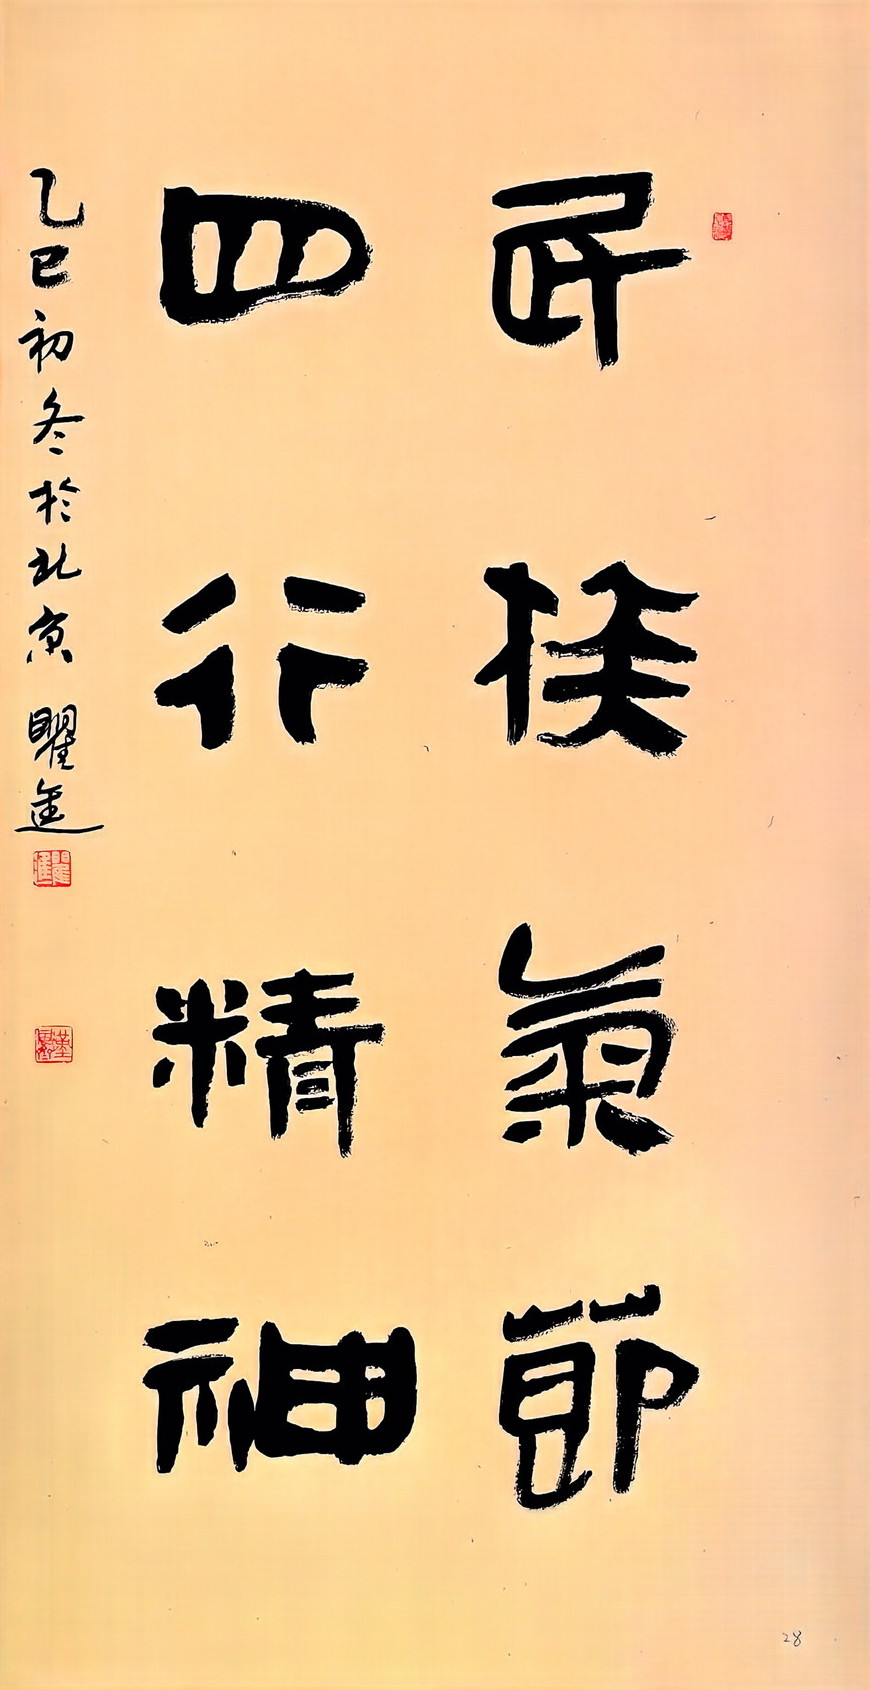 民族氣節
四行精神
乙巳初冬於北京 瞿進
28